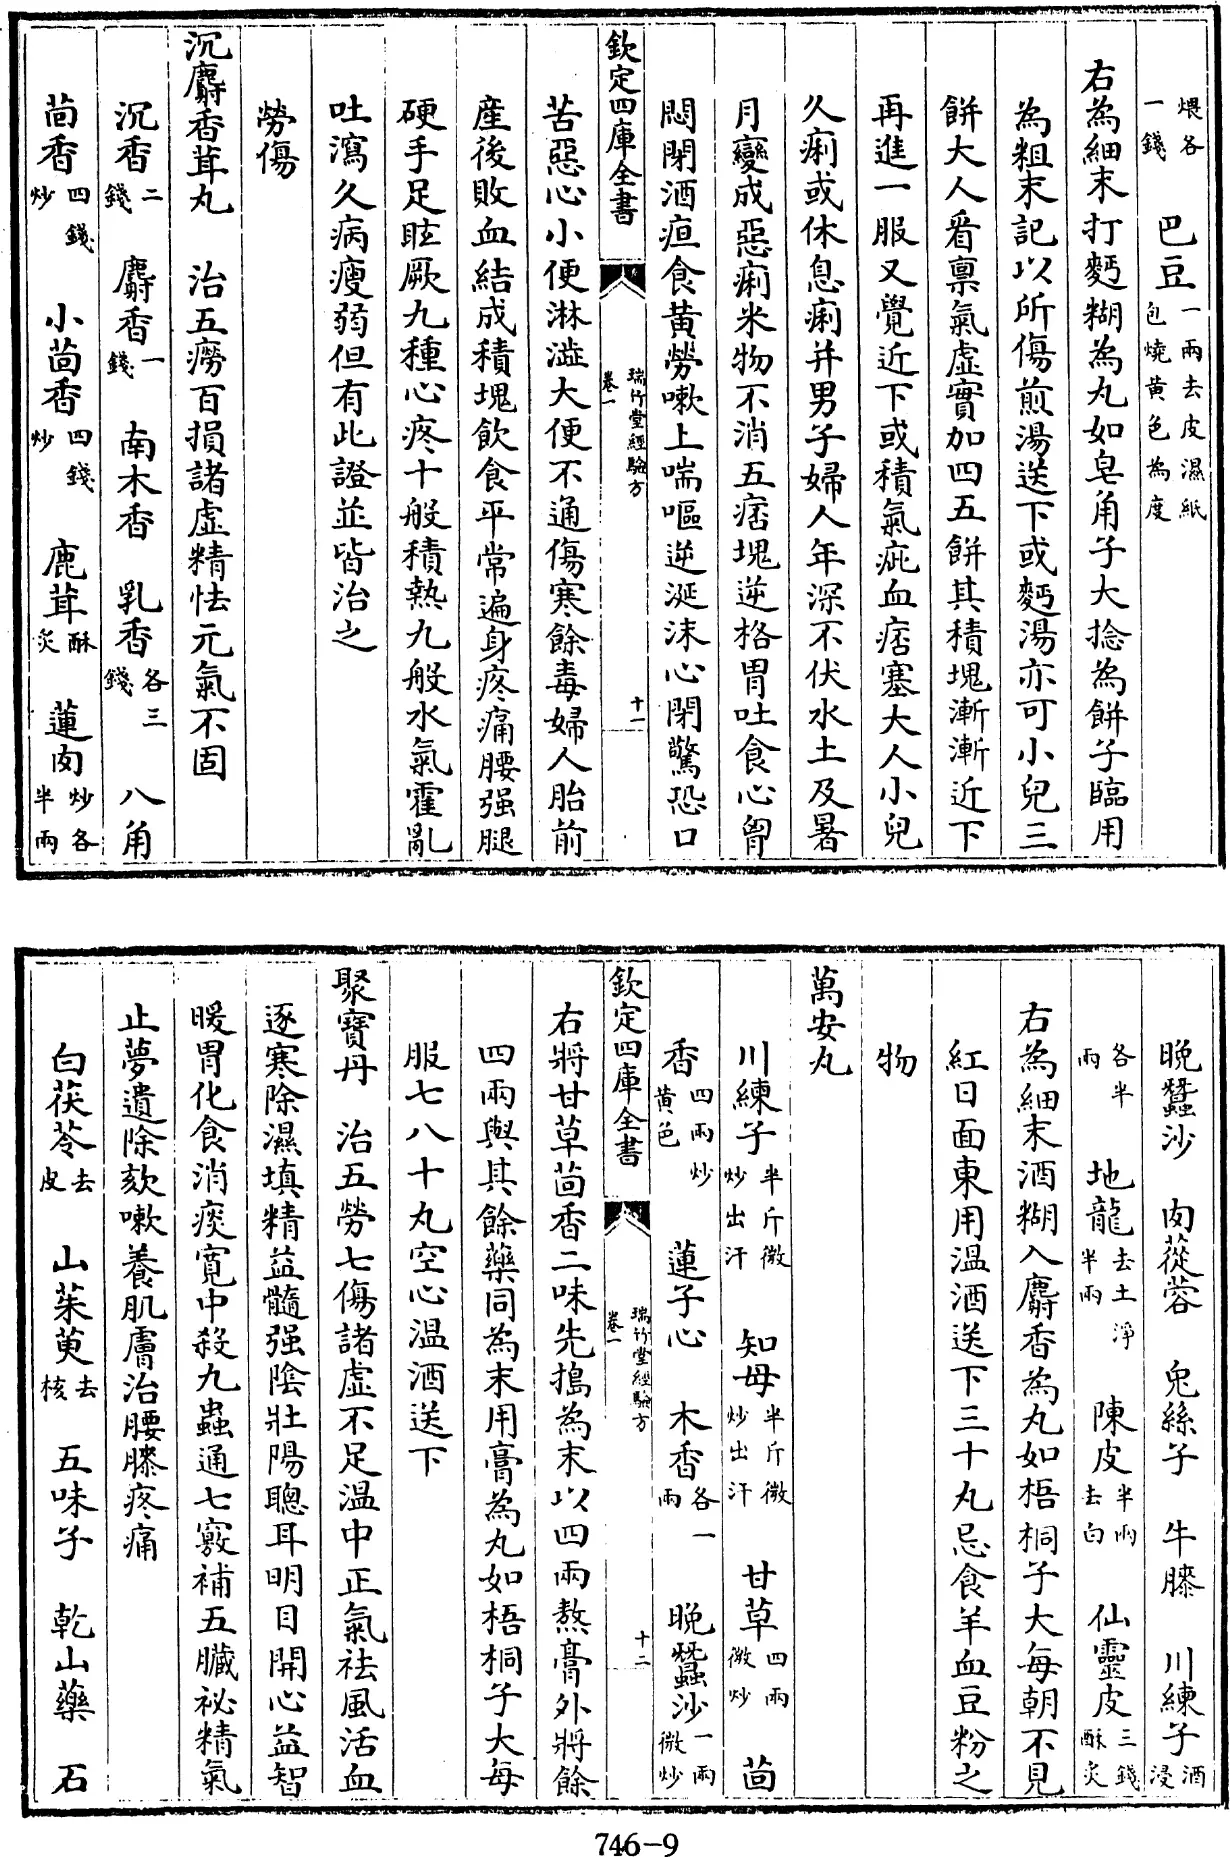 煨各一錢　巴豆一兩去皮濕紙包燒黄色為度
右為細末打麪糊為丸如皂角子大捻為餅子臨用
為粗末記以所傷煎湯送下或麪湯亦可小兒三
餅大人看禀氣虛實加四五餅其積塊漸漸近下
再進一服又覺近下或積氣疵血痞塞大人小兒
久痢或休息痢并男子婦人年深不伏水土及暑
月變成惡痢米物不消五痞塊逆格胃吐食心胷
悶閉酒疸食黄勞嗽上喘嘔逆涎沫心閉驚恐口
欽定四庫全書　瑞竹堂經驗方卷一　十一
苦惡心小便淋澁大便不通傷寒餘毒婦人胎前
産後敗血結成積塊飲食平常遍身疼痛腰强腿
硬手足眩厥九種心疼十般積熱九般水氣霍亂
吐瀉久病瘦弱但有此證並皆治之
勞傷
沉麝香茸丸　治五癆百損諸虛精怯元氣不固
沉香二錢　麝香一錢　南木香　乳香各三錢　八角
茴香四錢炒　小茴香四錢炒　鹿茸酥炙　蓮肉炒各半兩
晚蠶沙　肉蓯蓉　兎絲子　牛膝　川練子酒浸
各半兩　地龍去土淨半兩　陳皮半兩去白　仙靈皮三錢酥炙
右為細末酒糊入麝香為丸如梧桐子大每朝不見
紅日面東用温酒送下三十丸忌食羊血豆粉之
物
萬安丸
川練子半斤微炒出汗　知母半斤微炒出汗　甘草四兩微炒　茴
香四兩炒黄色　蓮子心　木香各一兩　晚蠶沙一兩微炒
欽定四庫全書　瑞竹堂經驗方卷一　十二
右將甘草茴香二味先搗為末以四兩熬膏外將餘
四兩與其餘藥同為末用膏為丸如梧桐子大每
服七八十丸空心温酒送下
聚寶丹　治五勞七傷諸虛不足温中正氣祛風活血
逐寒除濕填精益髓强陰壯陽聰耳明目開心益智
暖胃化食消痰寛中殺九蟲通七竅補五臟祕精氣
止夢遺除欬嗽養肌膚治腰膝疼痛
白茯苓去皮　山茱萸去核　五味子　乾山藥　石
746-9